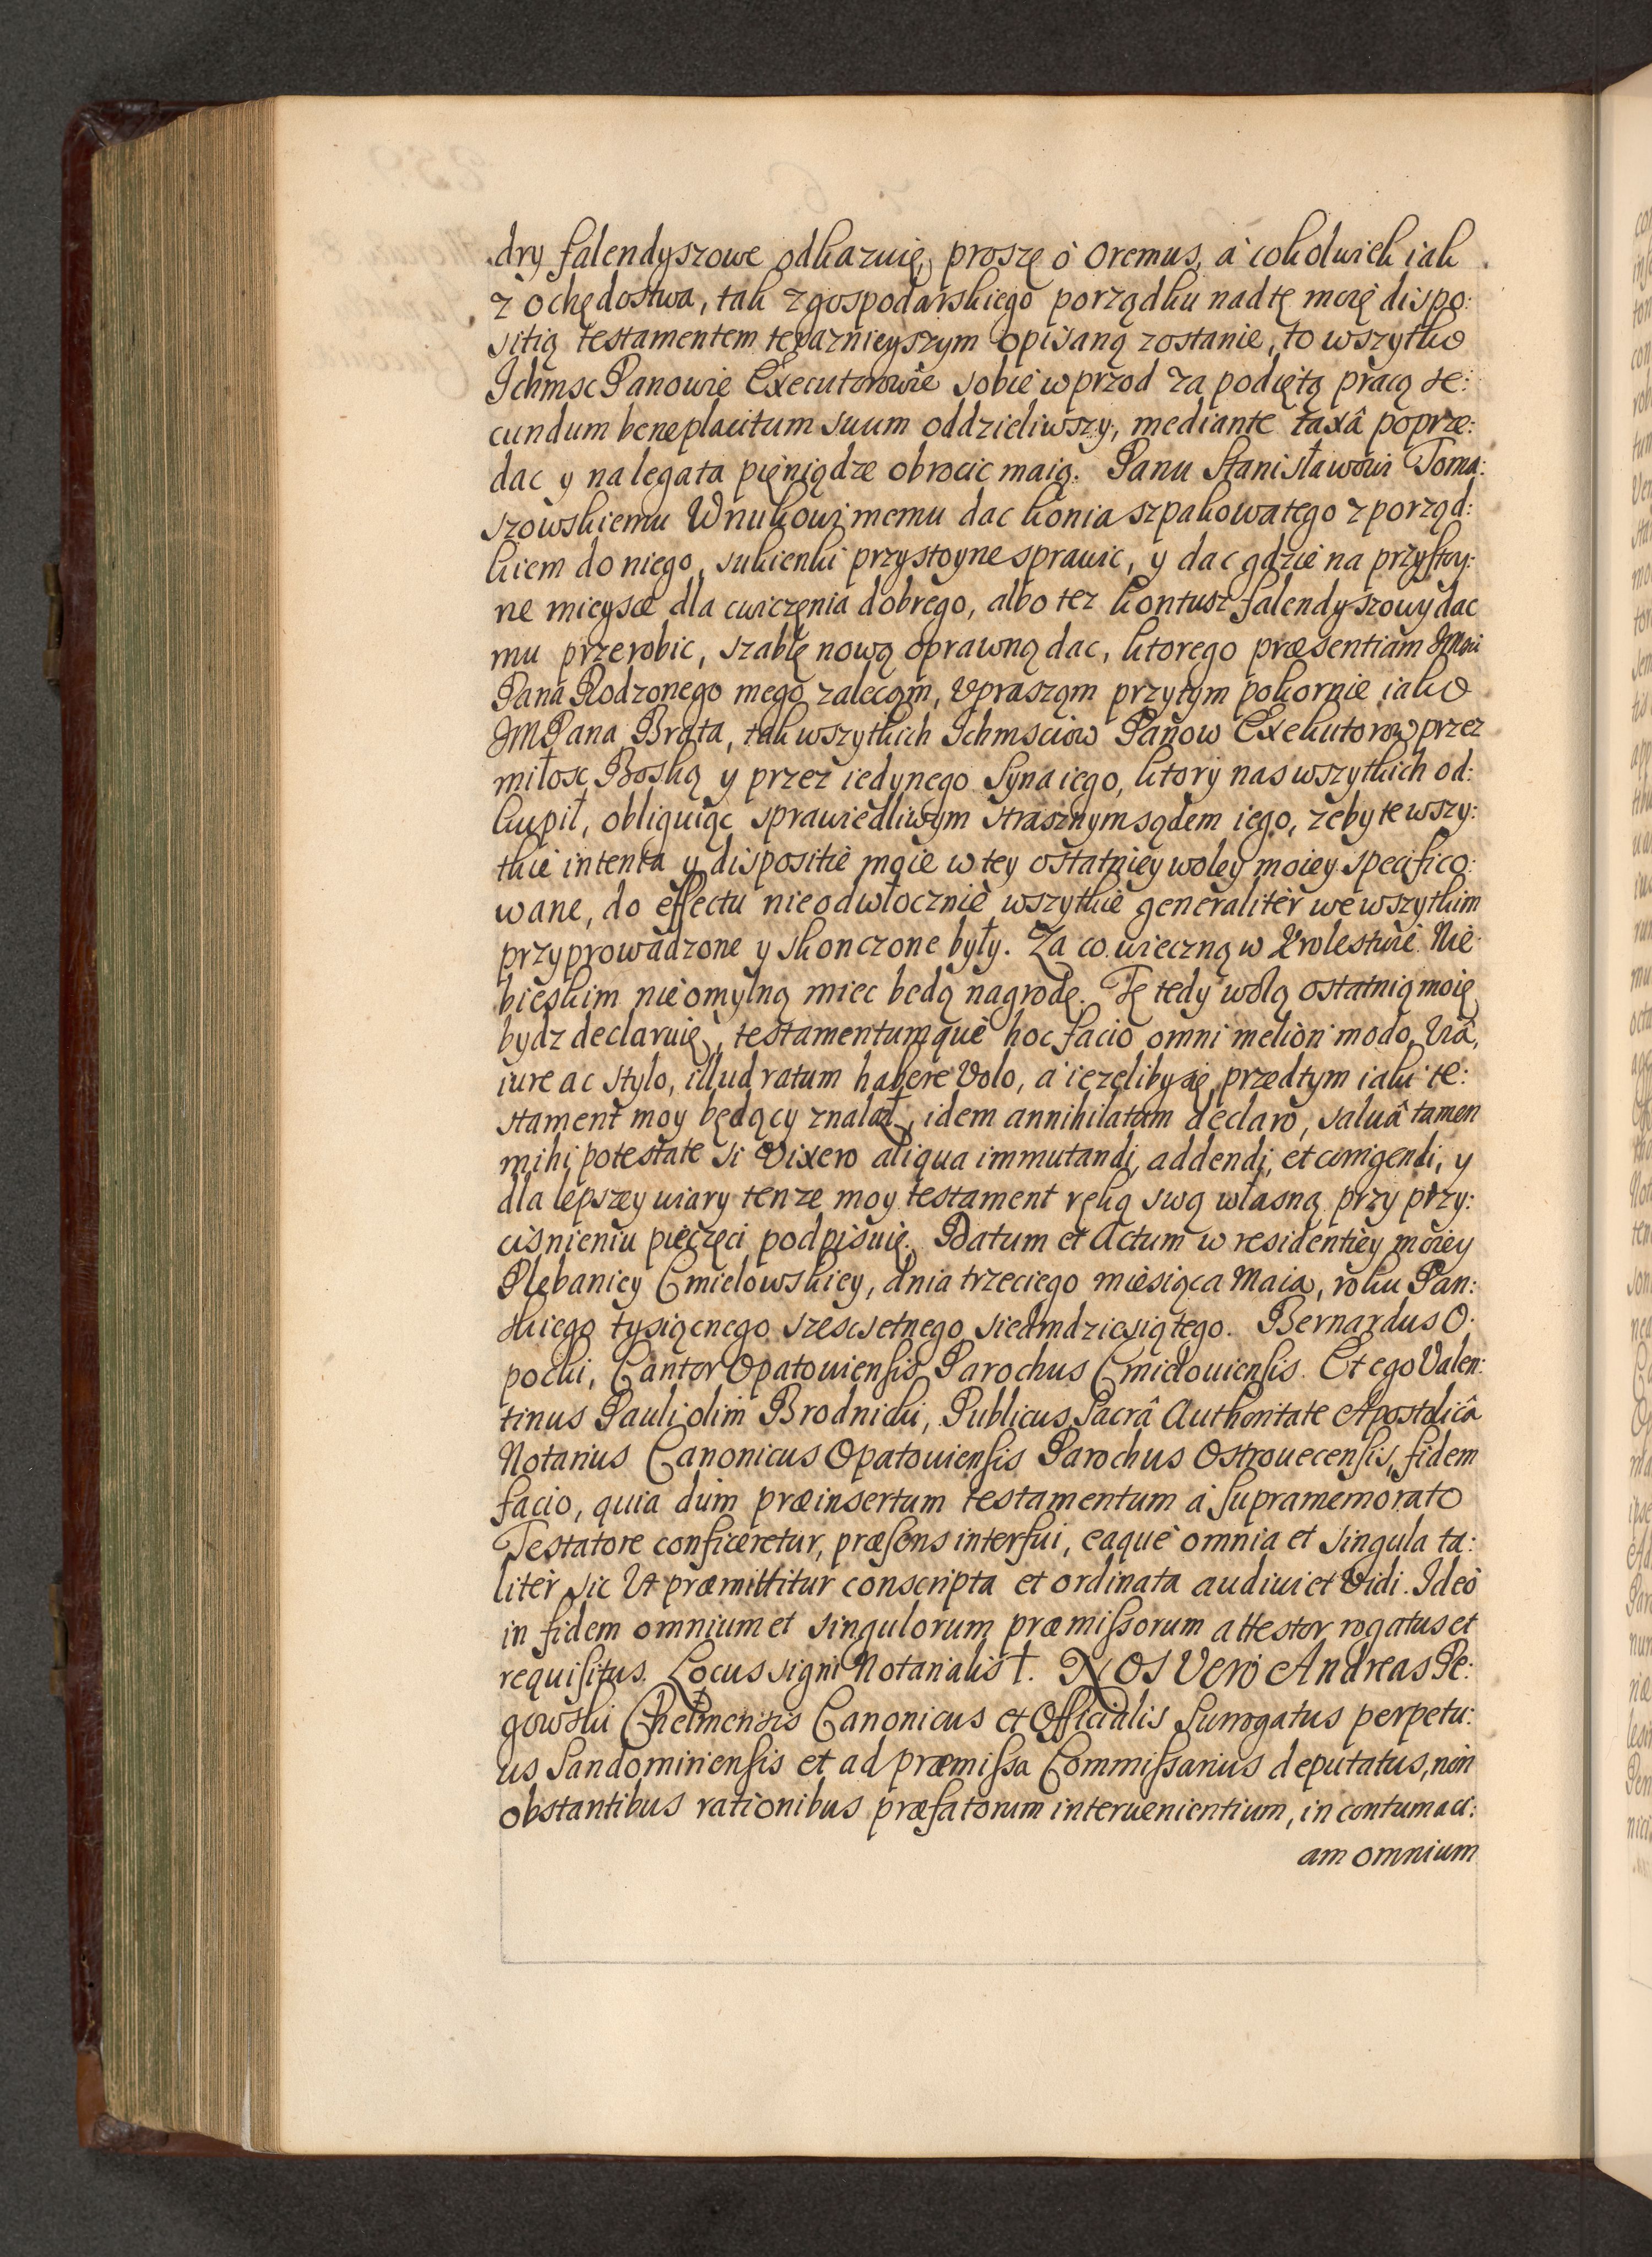 dry falendyszowe odkazuię, proszę ò oremus, à cokolwiek iak
z ochędostwa, tak z gospodarskiego porządku nad tę moię dispo:
sitią testamentem teraznieyszym opisaną zostanie, to wszytko
Ichmsc Panowie Executorowie sobie wprzod za podiętą pracą se:
cundum beneplacitum suum oddzieliwszy, mediante taxâ poprze:
dac y na legata pięniądze obrocic maią. Panu Stanisławowi Toma:
szowskiemu Wnukowi memu dac konia szpakowatego z porząd:
kiem do niego, sukienki przystoyne sprawic, y dac gdzie na przystoy:
ne mieysce dla cwiczęnia dobrego, albo tez kontusz falendyszowy dac
mu przerobic, szablę nową oprawną dac, ktorego præsentiam IMci
Pana Rodzonego mego zalecąm, Vprasząm przytym pokornie iako
JMPana Brata, tak wszytkich Ichmsciow Panow Exekutorow przez
miłosc Boską y przez iedynego Syna iego, ktory nas wszytkich od:
kupił, obliguiąc sprawiedliwym strasznym sądem iego, zeby te wszy:
tkie intenta y dispositie moie w tey ostatniey woley moiey specifico:
wane, do effectu nieodwłocznie wszytkie generaliter we wszytkim
przyprowadzone y skonczone były. Za co wieczną w Krolestwie Nie:
bieskim nieomylną miec będą nagrodę. Tę tedy wolą ostatnią moię
bydz declaruię, testamentumque hoc facio omni meliori modo, Viâ,
iure ac stylo, illud ratum habere Volo, a iezeliby się przedtym iaki te:
stament moy będący znalazł, idem annihilatum declaro, saluâ tamen
mihi potestate si Vixero aliqua immutandi, addendi, et corrigendi, y
dla lepszey wiary tenze moy testament ręką swą własną przy przy:
cisnieniu pieczęci podpisuię. Datum et Actum w residentiey moiey
Plebaniey Cmielowskiey, dnia trzeciego miesiąca Maia, roku Pan:
skiego tysiącnego szescsetnego siedmdziesiątego. Bernardus O:
pocki, Cantor Opatouiensis Parochus Cmielouiensis. Et ego Valen:
tinus Pauli olim Brodnicki, Publicus Sacrâ Authoritate Apostolicâ
Notarius Canonicus Opatouiensis Parochus Ostrouecensis, fidem
facio, quia dum præinsertum testamentum à supramemorato
Testatore conficeretur, præsens interfui, eaque omnia et singula ta:
liter sic Vt præmittitur conscripta et ordinata audiui et Vidi. Ideò
in fidem omnium et singulorum præmissorum attestor rogatus et
requisitus. Locus signi Notarialis †. NOS Vero Andreas Pe:
gowski Chełmensis Canonicus et Officialis Surrogatus perpetu:
us Sandomiriensis et ad præmissa Commissarius deputatus, non
obstantibus rationibus præfatorum interuenientium, in contumaci:
am omnium